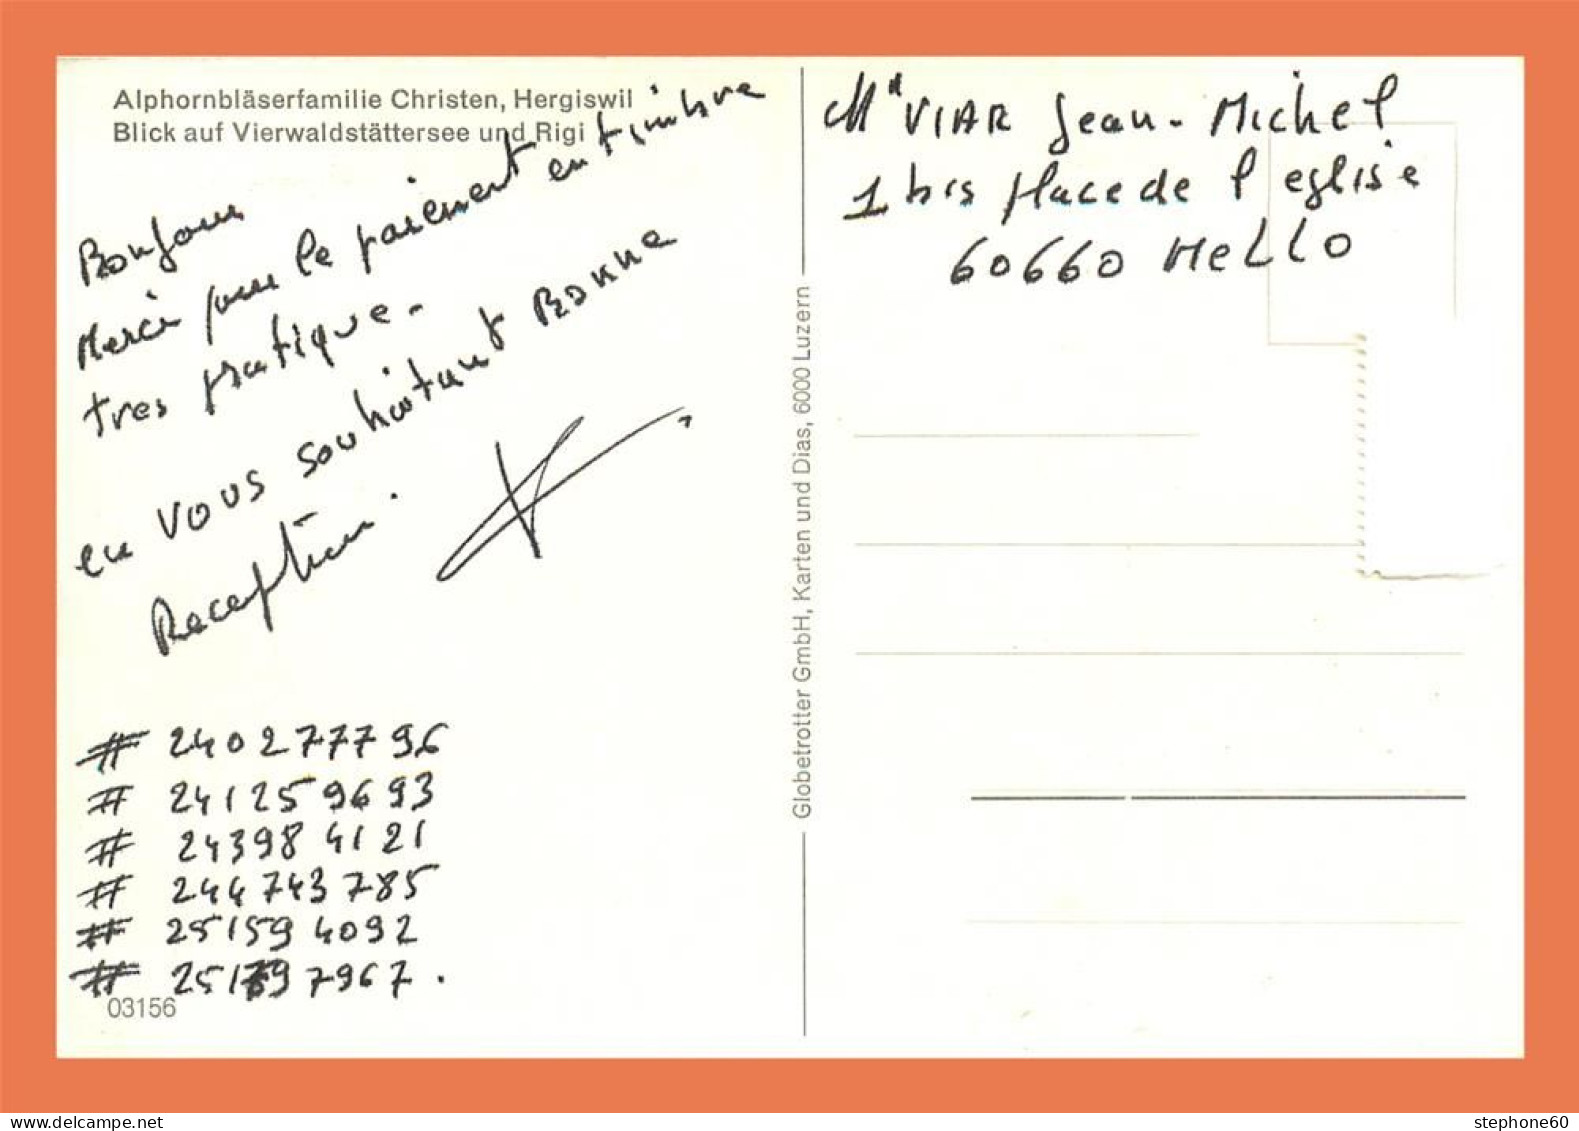 Alphornbläserfamilie Christen, Hergiswil
Blick auf Vierwaldstättersee und Rigi
Bonjour
Merci pour le paiement en timbre
tres pratique.
en vous souhaitant Bonne
Reception.
# 240277796
# 241259693
# 243984121
# 244743785
# 251594092
# 251797967.
03156
Globetrotter GmbH, Karten und Dias, 6000 Luzern
Mr VIAR Jean-Michel
1 bis place de l eglise
60660 MELLO
stephone60